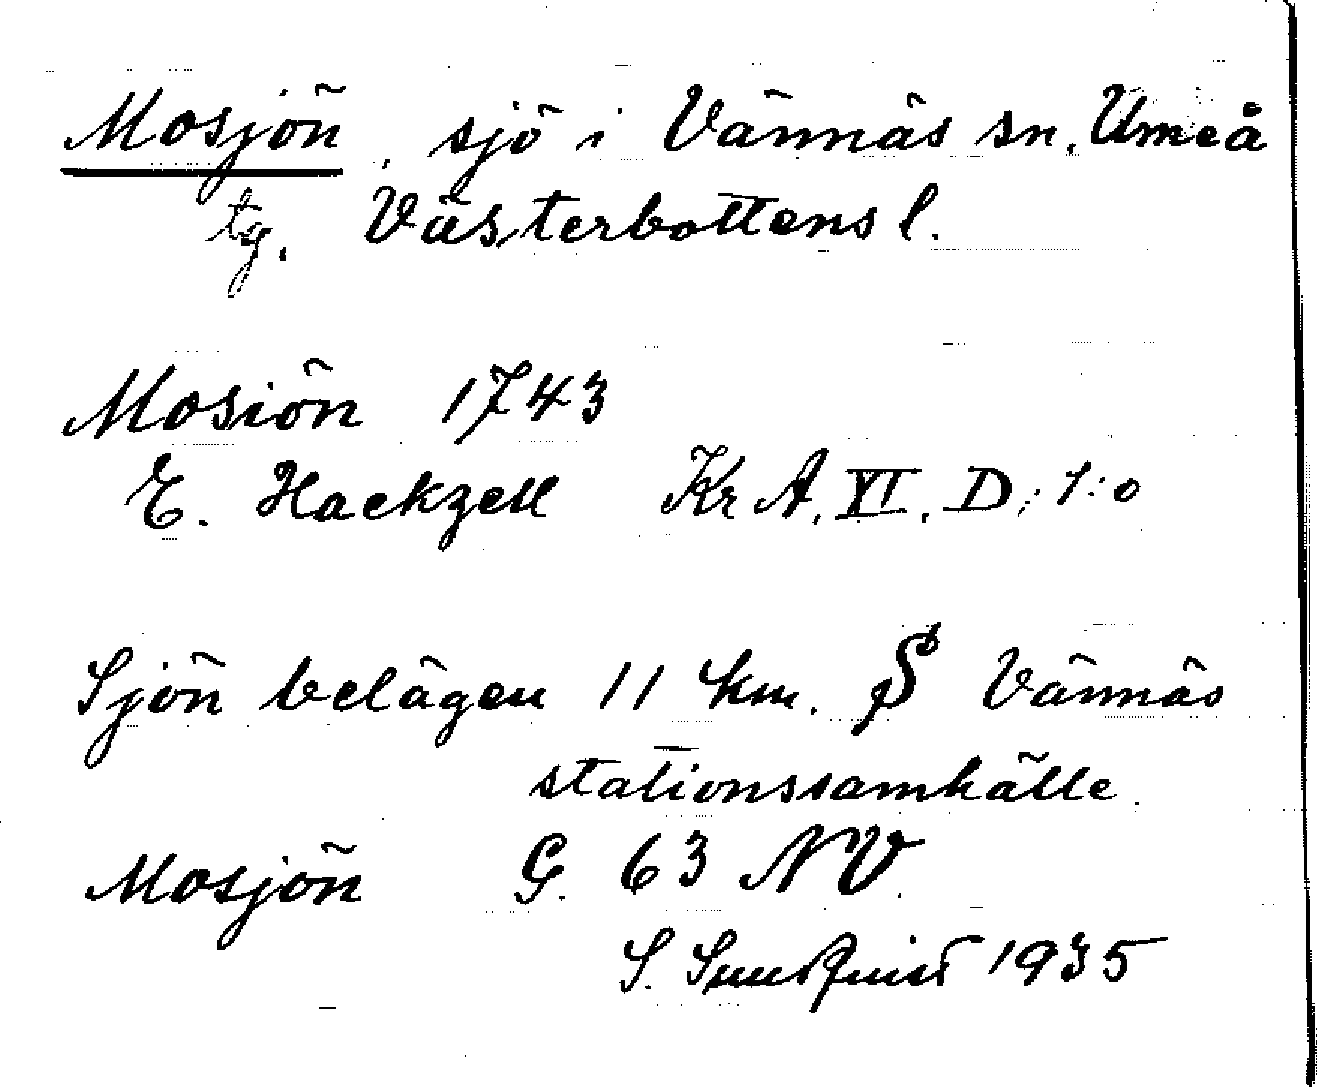 Mosjön, sjö i Vännäs sn, Umeå
tg. Västerbottens l.
Mosiön 1743
E. Hackzell KrA. VI. D. 1:0
Sjön belägen 11 km. S Vännäs
stationssamhälle.
Mosjön G. 63 NV.
S. Sundquist 1935